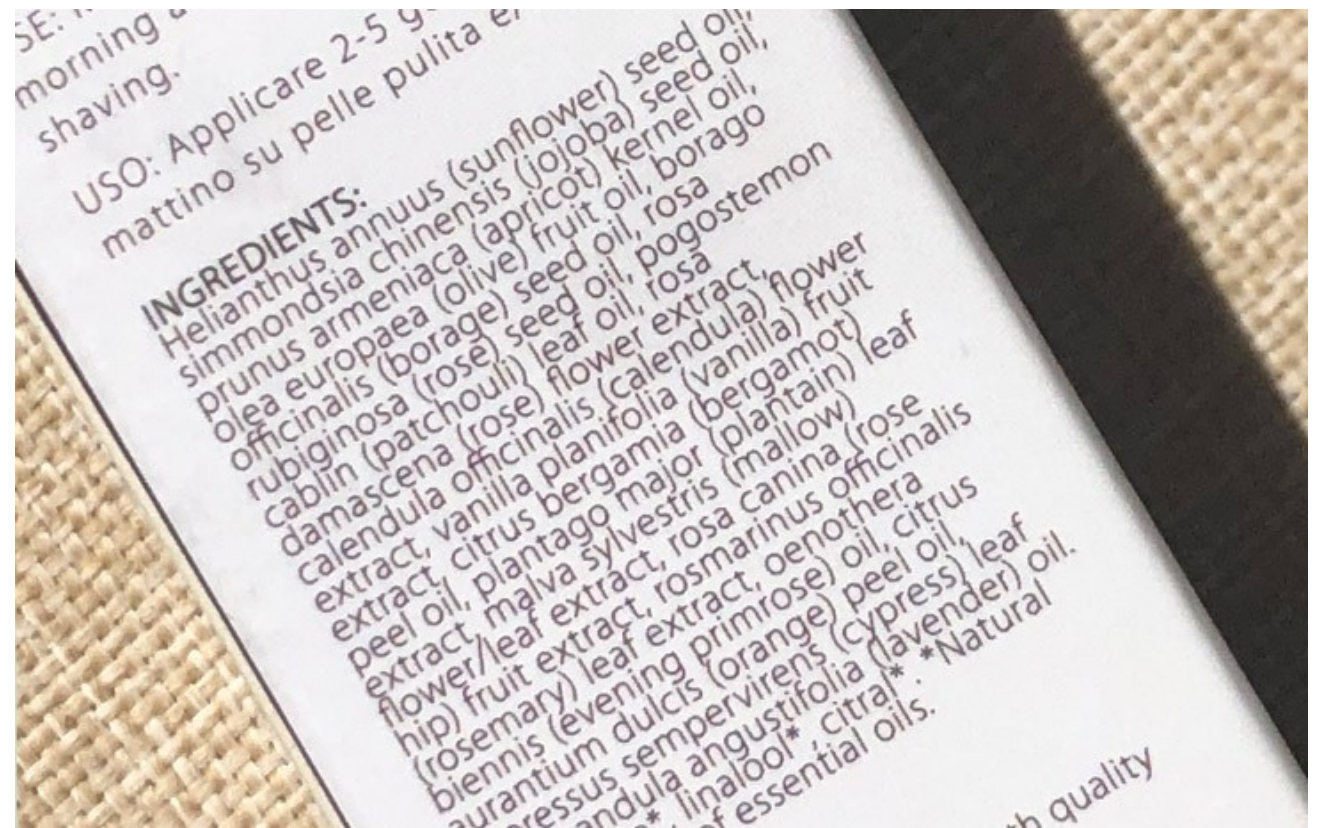 morning
shaving.
USO: Applicare 2-5
mattino su pelle pulita
INGREDIENTS:
Helianthus annuus (sunflower) seed oil,
simmondsia chinensis (jojoba) seed oil,
prunus armeniaca (apricot) kernel oil,
olea europaea (olive) fruit oil, borago
officinalis (borage) seed oil, rosa
rubiginosa (rose) seed oil, pogostemon
cablin (patchouli) leaf oil, rosa
damascena (rose) flower extract,
calendula officinalis (calendula) flower
extract, vanilla planifolia (vanilla) fruit
extract, citrus bergamia (bergamot)
peel oil, plantago major (plantain) leaf
extract, malva sylvestris (mallow)
flower/leaf extract, rosa canina (rose
hip) fruit extract, rosmarinus officinalis
(rosemary) leaf extract, oenothera
biennis (evening primrose) oil, citrus
aurantium dulcis (orange) peel oil,
pressus sempervirens (cypress) leaf
andula angustifolia (lavender) oil.
linalool*, citral*. *Natural
of essential oils.
quality